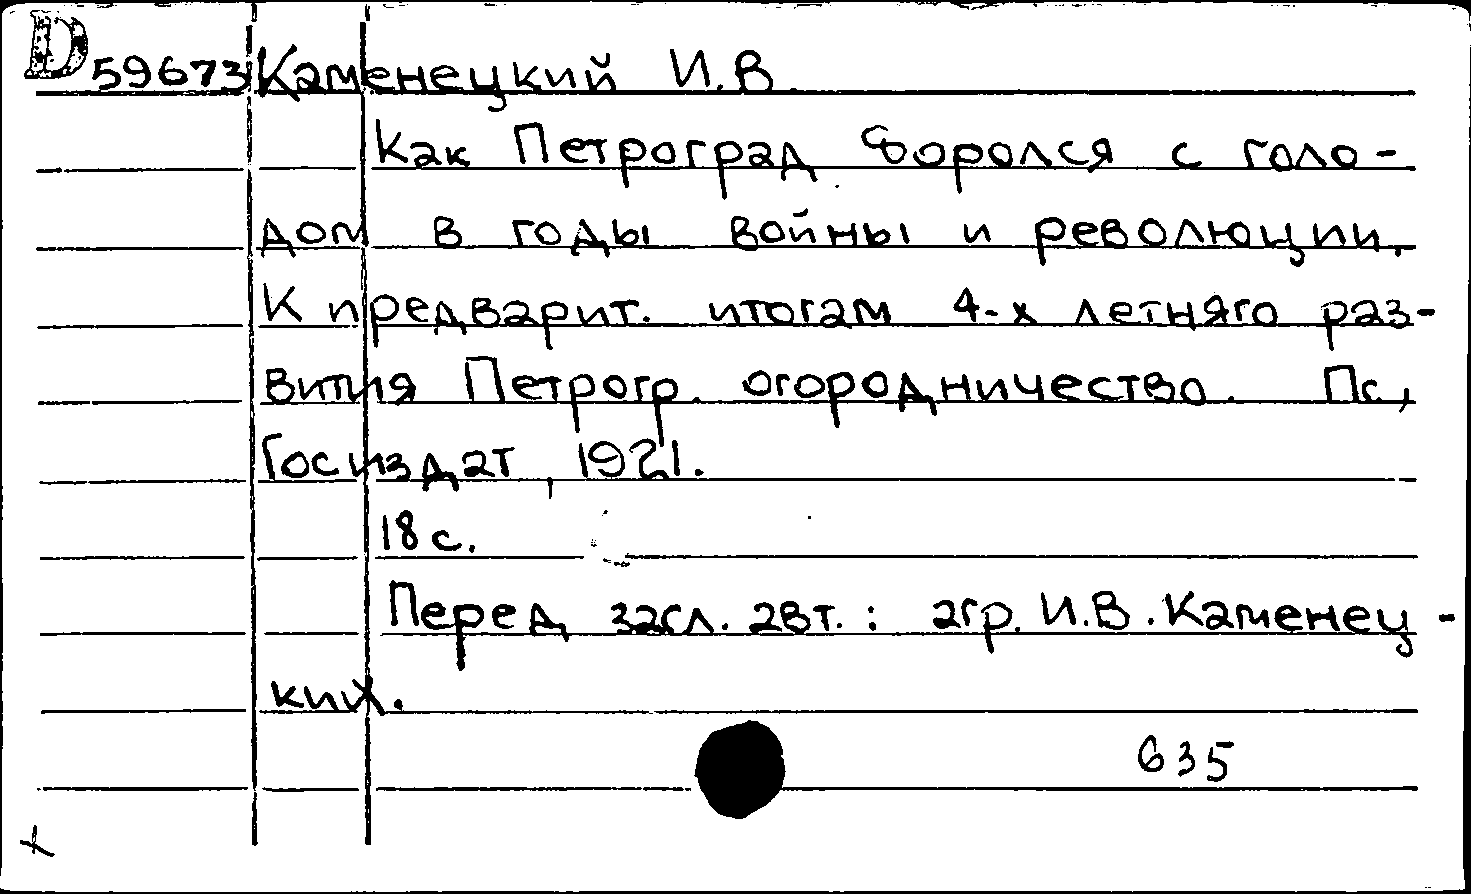 D 59673 Каменецкий И.В.
Как Петроград боролся с голо-
дом в годы войны и революции.
К предварит. итогам 4-х летняго раз-
вития Петрогр. огородничество. Пс,
Госиздат, 1921.
18 с.
Перед загл. авт.: агр. И.В. Каменец-
ких.
635